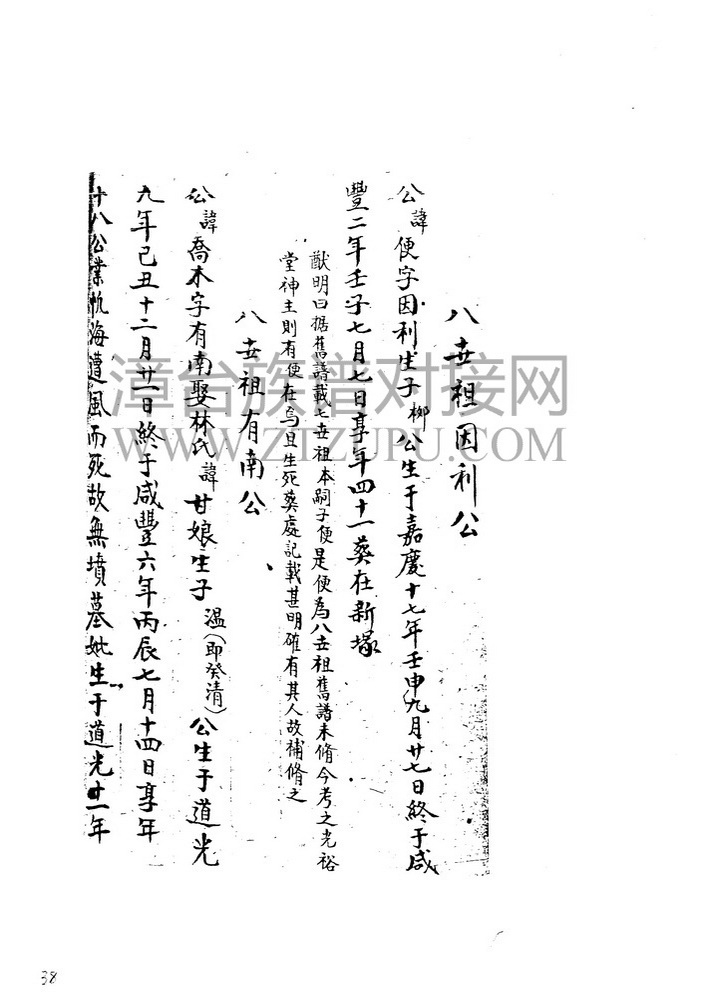 八世祖因利公
公諱便字因利生子柳公生于嘉慶十七年壬申九月廿七日終于咸
豐二年壬子七月七日享年四十一葬在新塚
猷明曰据舊譜載七世祖本嗣子便是便為八世祖舊譜未脩今考之光裕
堂神主則有便在焉且生死葬處記載甚明確有其人故補脩之
八世祖有南公
公諱喬木字有南娶林氏諱甘娘生子温(即癸清)公生于道光
九年己丑十二月廿一日終于咸豐六年丙辰七月十四日享年
十八公業帆海遭風而死故無墳墓妣生于道光廿一年
漳台族谱对接网
WWW.ZTZUPU.COM
38